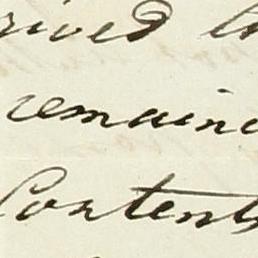 rived th
remaind
Contents